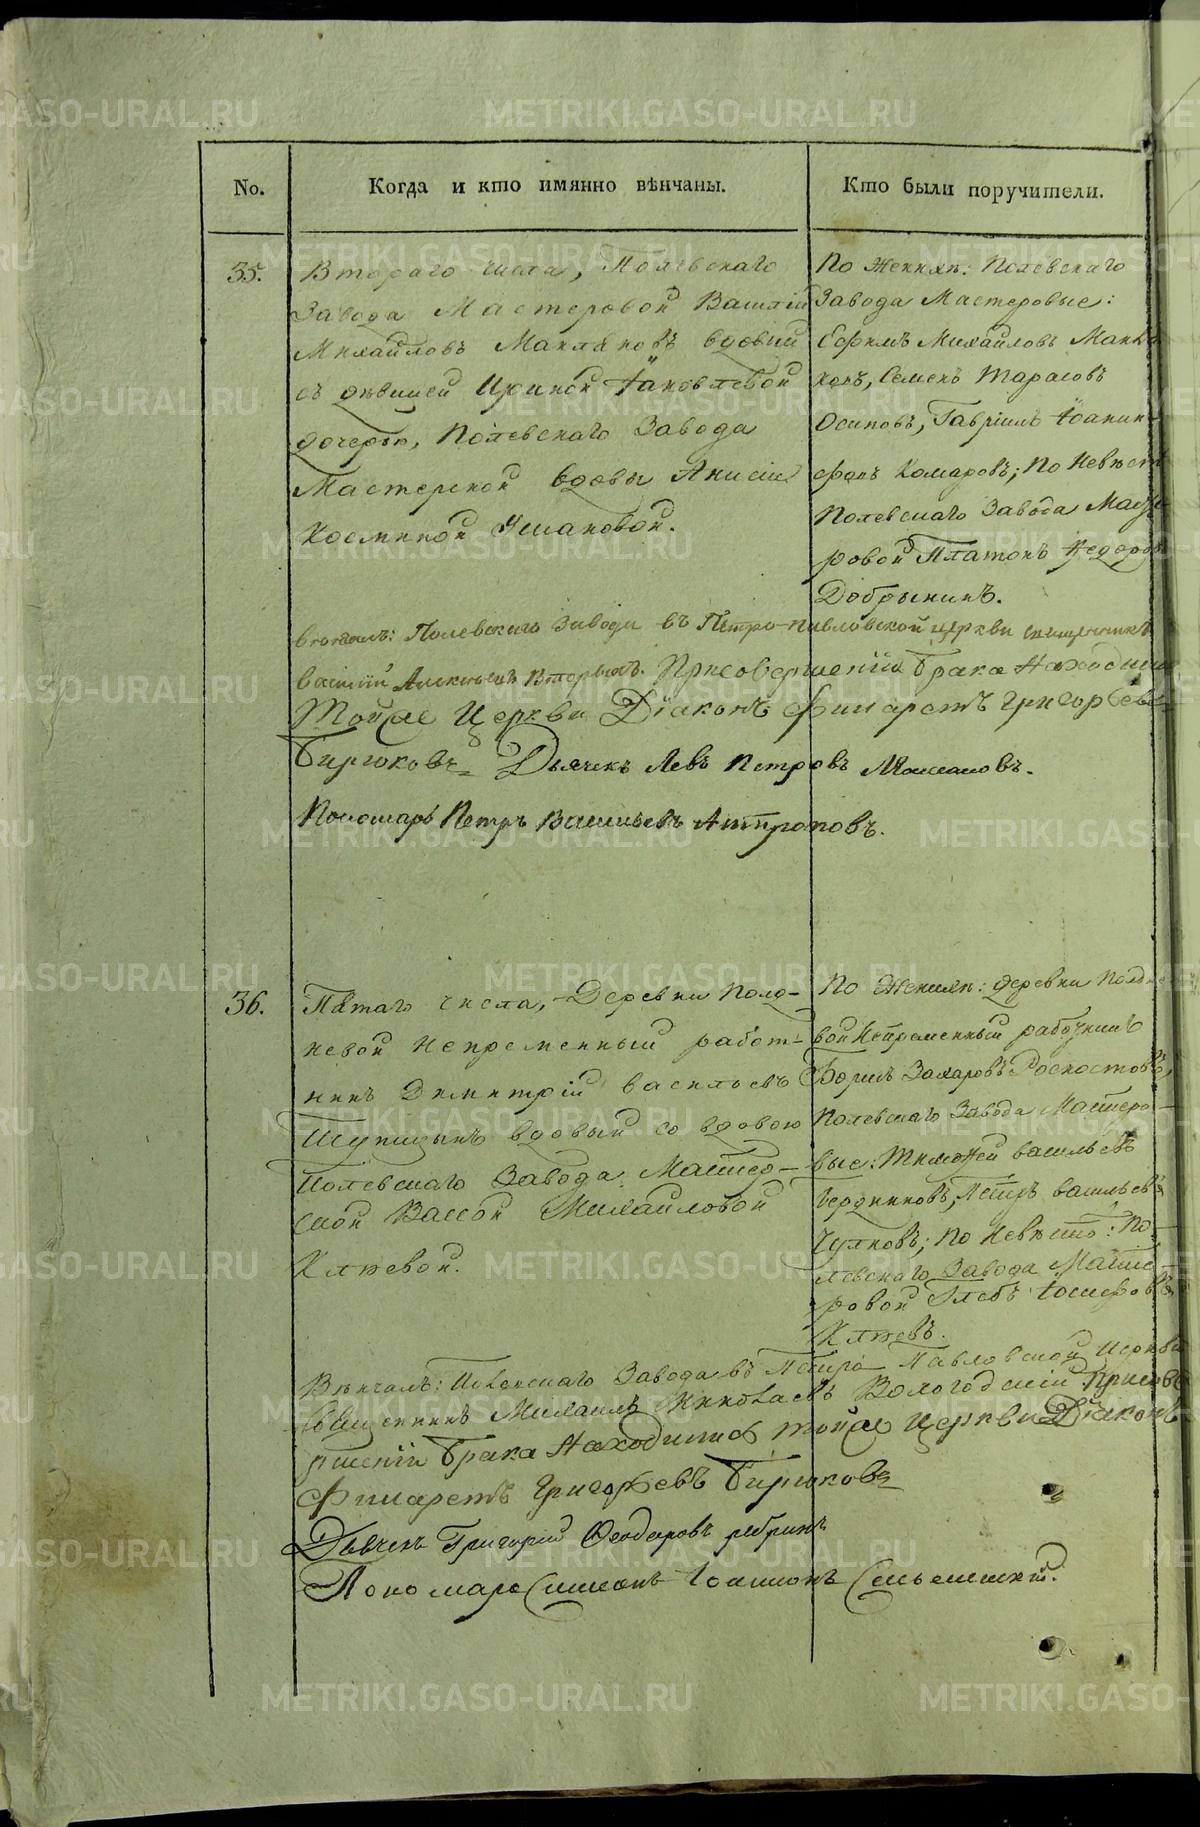 No.
Когда и кто имянно вѣнчаны.
Кто были поручители.
35.
Втораго числа, Полевскаго
Завода Мастеровой Василій
Михайловъ Маклаковъ вдовый
съ дѣвицей Ириной Іаковлевой
дочерью, Полевскаго Завода
Мастерской вдовы Анисіи
Космипой Ушаковой.
По Женихѣ: Полевскаго
Завода Мастеровые:
Ефимъ Михайловъ Макла
ковъ, Семенъ Тарасовъ
Осиповъ, Гавріилъ Іоанни-
Комаровъ; По Невѣстѣ
Полевскаго Завода Масте
ровой Платонъ Ѳедоровъ
Добрынинъ.
вѣнчалъ: Полевскаго завода въ Петро-павловской церкви священникъ
василій Алексѣевъ Вторыхъ. Присовершеніи брака Находился
Тойже Церкви Діаконъ Филаретъ Григорьевъ
Бирюковъ Дьячекъ Левъ Петровъ
Пономарь Петръ Васильевъ Антроповъ.
36.
Пятаго числа, Деревни Полд-
невой Непременный работ-
никъ Димитрій васильевъ
Тупицынъ вдовый со вдовою
Полевскаго Завода Мастер-
ской Вассой Михайловой
Клюевой.
По Женихѣ: деревни Полдне
вой Непременный работникъ
Борисъ Захаровъ Роскостовъ,
Полевскаго Завода Мастеро-
вые: Тимофей васильевъ
Бердниковъ, Петръ васильевъ
Чулковъ; По Невѣстѣ: По-
левскаго Завода Масте-
ровой Глебъ Іосифовъ
Клюевъ.
Вѣнчалъ: Полевскаго Завода въ Петро Павловской Церкви
Священникъ Михаилъ Николаевъ Вологодскій Присове
ршеніи брака Находился тойже Церкви Діаконъ
Филаретъ Григорьевъ Бирюковъ
Дьячекъ Григорій Ѳеодоровъ ребринъ
Пономарь Симеонъ